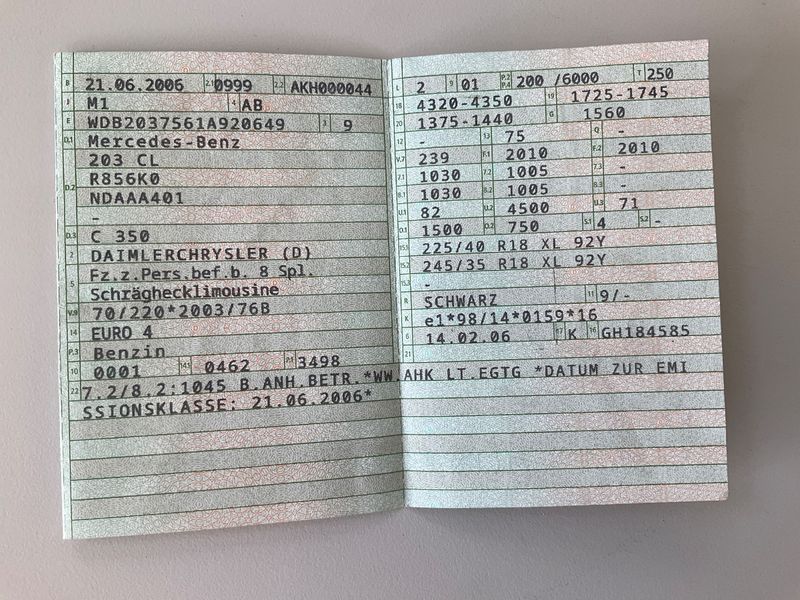 B 21.06.2006 2.1 0999 2.2 AKH000044
J M1 4 AB
E WDB2037561A920649 3 9
D.1 Mercedes-Benz
203 CL
D.2 R856K0
NDAAA401
-
D.3 C 350
2 DAIMLERCHRYSLER (D)
5 Fz.z.Pers.bef.b. 8 Spl.
Schräghecklimousine
V.9 70/220*2003/76B
14 EURO 4
P.3 Benzin
10 0001 14.1 0462 P.1 3498
L 2 9 01 P.2 P.4 200 /6000 T 250
18 4320-4350 19 1725-1745
20 1375-1440 G 1560
12 - 13 75 Q -
V.7 239 F.1 2010 F.2 2010
7.1 1030 7.2 1005 7.3 -
8.1 1030 8.2 1005 8.3 -
U.1 82 U.2 4500 U.3 71
O.1 1500 O.2 750 S.1 4 S.2 -
15.1 225/40 R18 XL 92Y
15.2 245/35 R18 XL 92Y
15.3 -
R SCHWARZ 11 9/-
K e1*98/14*0159*16
6 14.02.06 17 K 16 GH184585
21
22 7.2/8.2:1045 B.ANH.BETR.*WW.AHK LT.EGTG *DATUM ZUR EMI
SSIONSKLASSE: 21.06.2006*